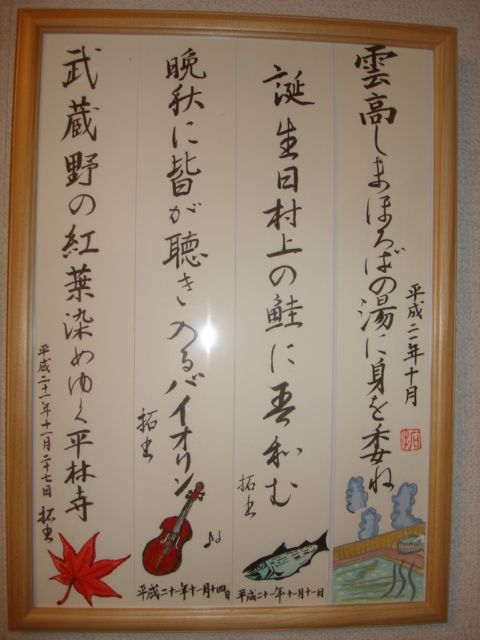 雲高しまほろばの湯に身を委ね
平成二一年十月
誕生日村上の鮭に吾和む
拓生
平成二十一年十月十一日
晩秋に皆が聴き入るバイオリン
拓生
平成二十一年十一月十四日
武蔵野の紅葉染めゆく平林寺
平成二十一年十一月二十七日 拓生